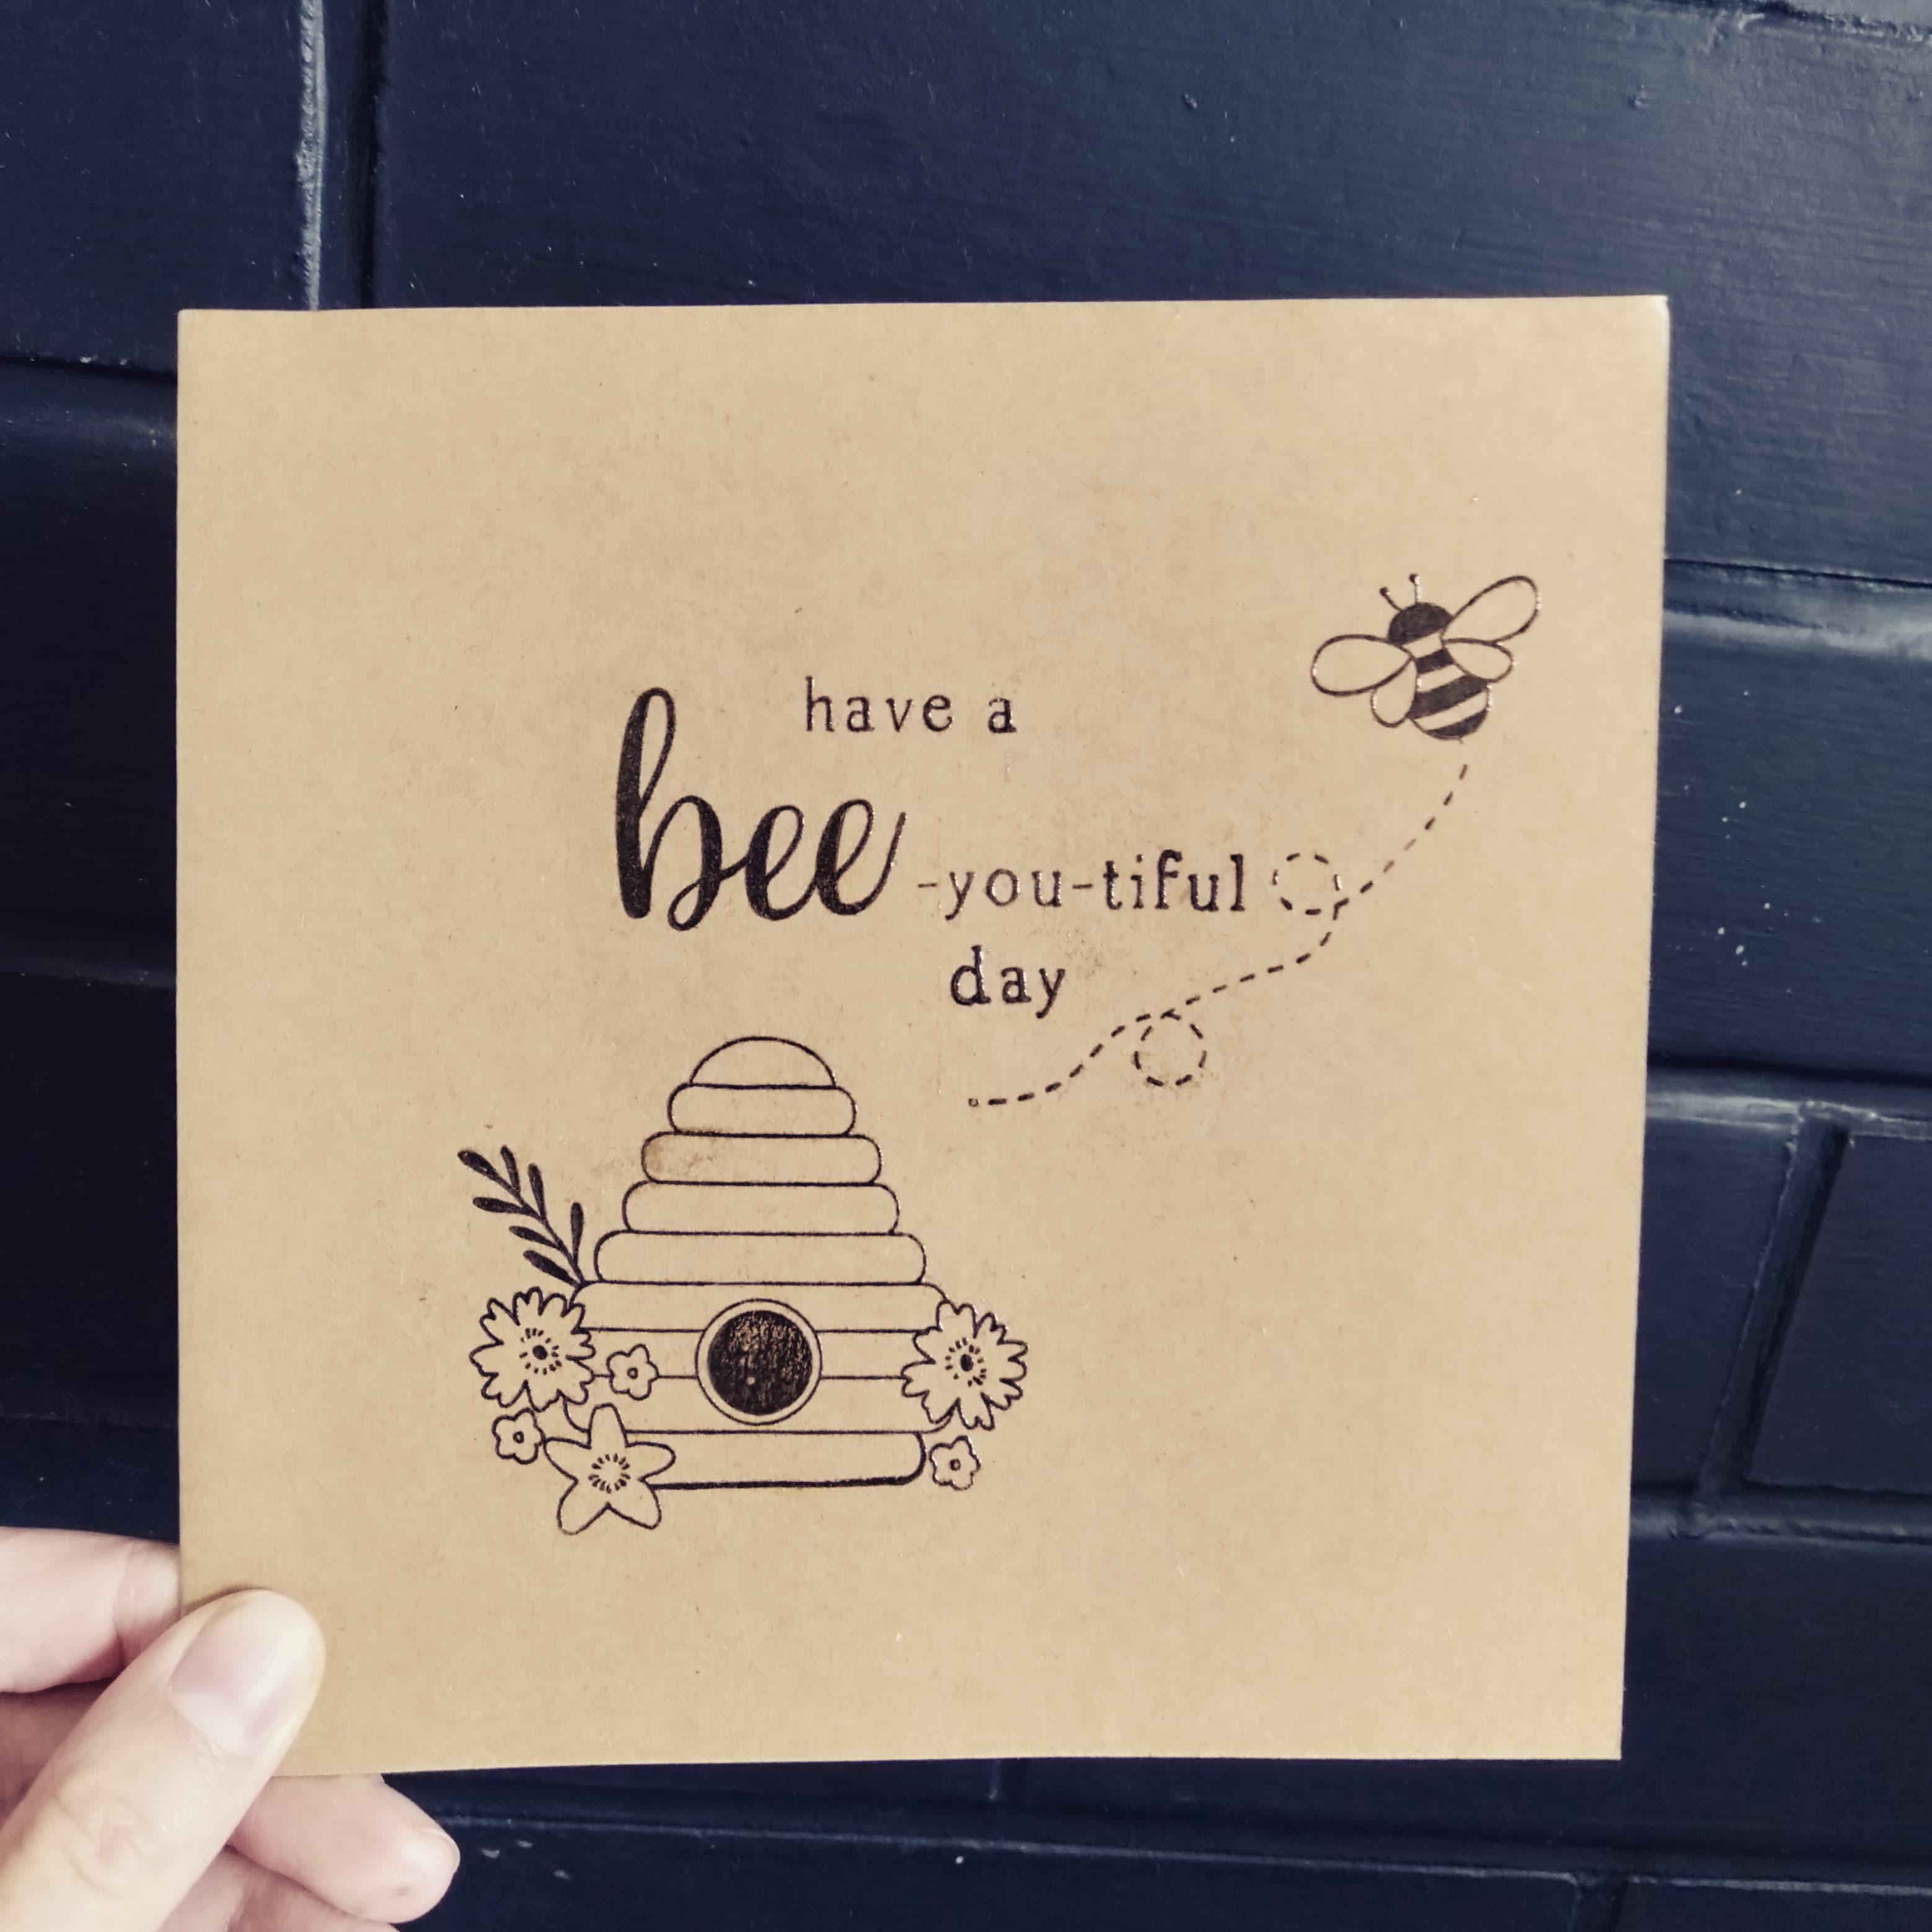 have a
bee-you-tiful
day